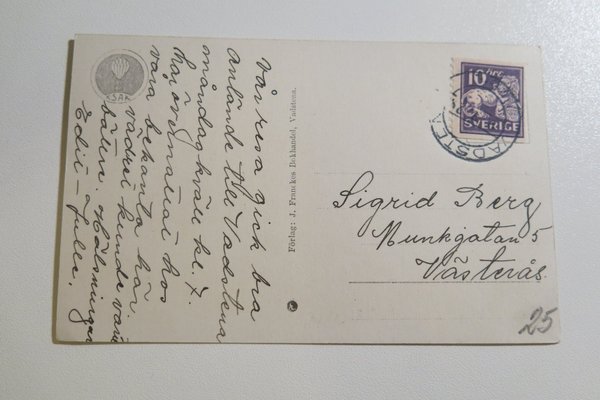 Vår resa gick bra
anlände till Vadstena
måndag kväll kl. 7.
här övernattat hos
våra bekanta här.
vädret kunde vara
bättre. Hälsningar
Edit –
ESAK
Förlag: J. Franckes Bokhandel, Vadstena.
10 ÖRE
SVERIGE
VADSTEN
Sigrid Berg
Munkgatan 5
Västerås
25